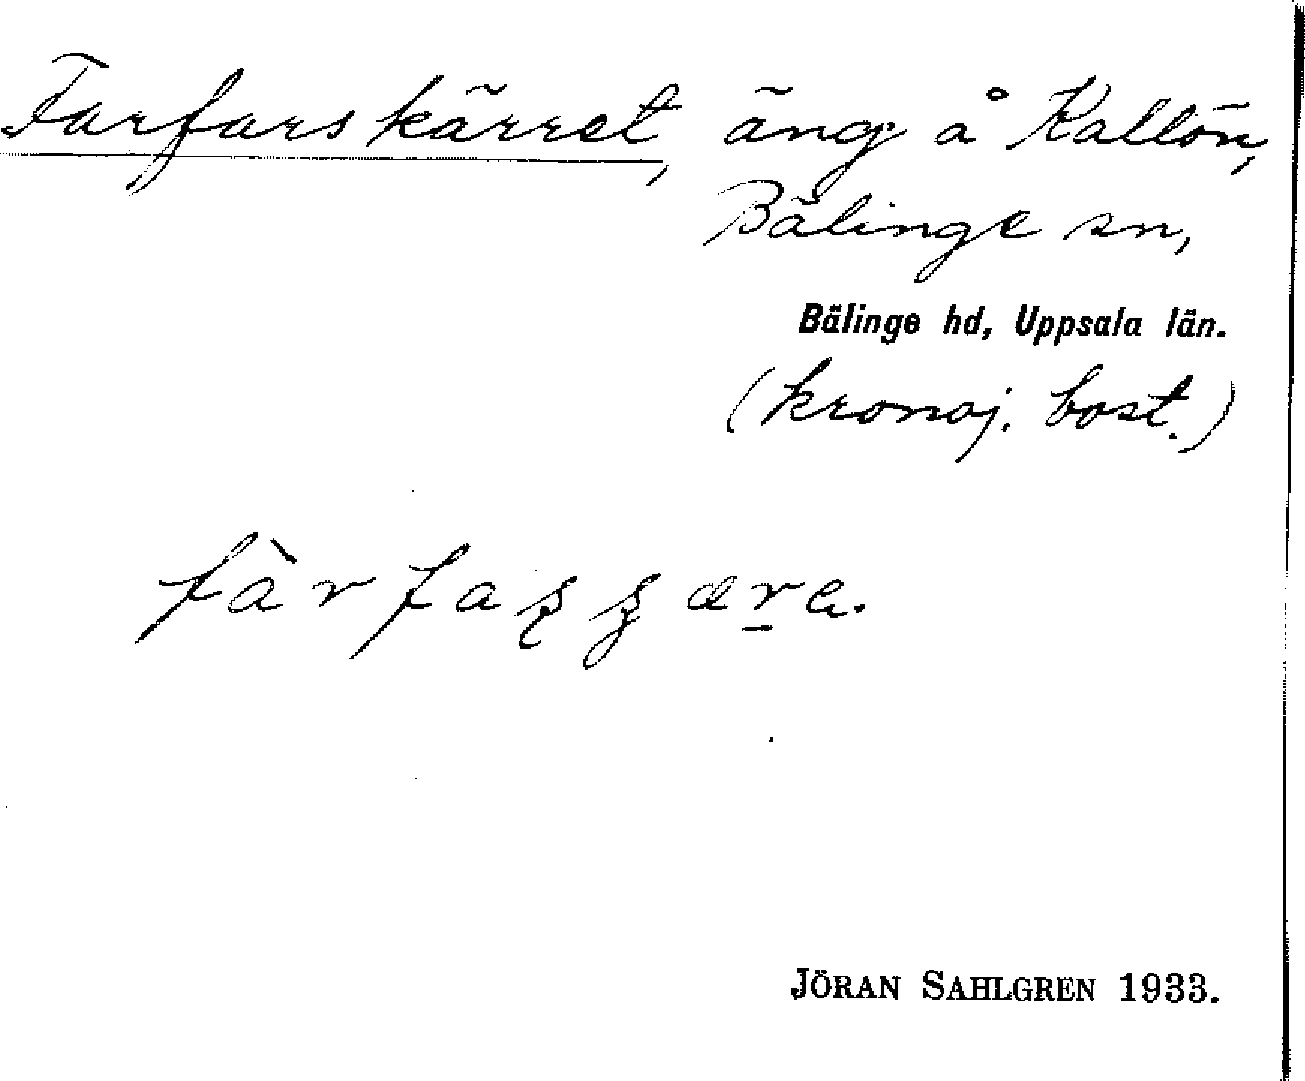 Farfarskärret, äng å Kallön,
Bälinge sn,
Bälinge hd, Uppsala län.
(kronoj. bost.)
JÖRAN SAHLGREN 1933.